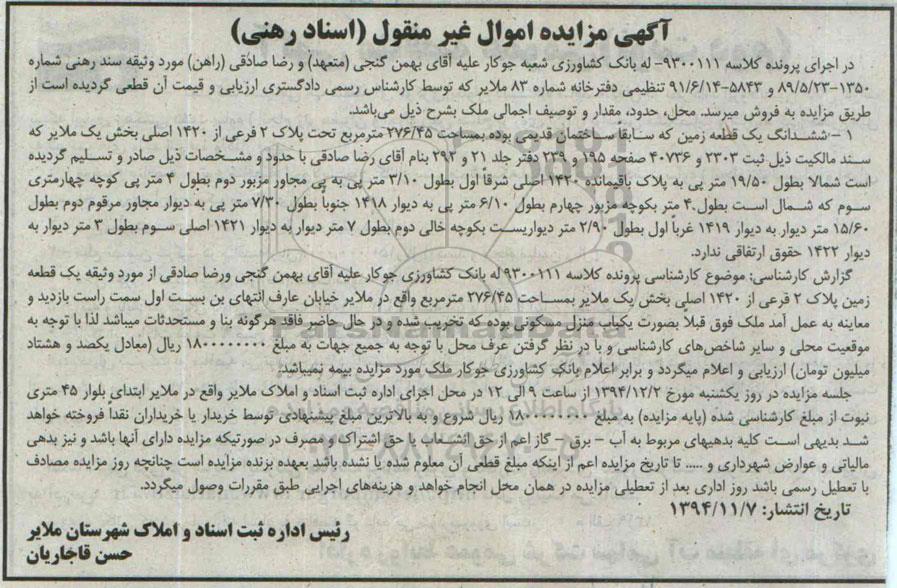 آگهی مزایده اموال غیر منقول (اسناد رهنی)
در اجرای پرونده کلاسه ۹۳۰۰۱۱۱- له بانک کشاورزی شعبه جوکار علیه آقای بهمن گنجی (متعهد) و رضا صادقی (راهن) مورد وثیقه سند رهنی شماره
۱۳۵۰-۸۹/۵/۲۳ و ۵۸۴۳-۹۱/۶/۱۴ تنظیمی دفترخانه شماره ۸۳ ملایر که توسط کارشناس رسمی دادگستری ارزیابی و قیمت آن قطعی گردیده است از
طریق مزایده به فروش میرسد. محل، حدود، مقدار و توصیف اجمالی ملک بشرح ذیل می‌باشد.
۱ - ششدانگ یک قطعه زمین که سابقاً ساختمان قدیمی بوده بمساحت ۲۷۶/۴۵ مترمربع تحت پلاک ۲ فرعی از ۱۴۲۰ اصلی بخش یک ملایر که
سند مالکیت ذیل ثبت ۲۳۰۳ و ۴۰۷۳۶ صفحه ۱۹۵ و ۲۳۹ دفتر جلد ۲۱ و ۲۹۲ بنام آقای رضا صادقی با حدود و مشخصات ذیل صادر و تسلیم گردیده
است شمالا بطول ۱۹/۵۰ متر پی به پلاک باقیمانده ۱۴۲۰ اصلی شرقاً اول بطول ۳/۱۰ متر پی به پی مجاور مزبور دوم بطول ۴ متر پی کوچه چهارمتری
سوم که شمال است بطول ۴ متر بکوچه مزبور چهارم بطول ۶/۱۰ متر پی به دیوار ۱۴۱۸ جنوباً بطول ۷/۳۰ متر پی به دیوار مجاور مرقوم دوم بطول
۱۵/۶۰ متر دیوار به دیوار ۱۴۱۹ غرباً اول بطول ۲/۹۰ متر دیواریست بکوچه خالی دوم بطول ۷ متر دیوار به دیوار ۱۴۲۱ اصلی سوم بطول ۳ متر دیوار به
دیوار ۱۴۲۲ حقوق ارتفاقی ندارد.
گزارش کارشناسی: موضوع کارشناسی پرونده کلاسه ۹۳۰۰۱۱۱ له بانک کشاورزی جوکار علیه آقای بهمن گنجی ورضا صادقی از مورد وثیقه یک قطعه
زمین پلاک ۲ فرعی از ۱۴۲۰ اصلی بخش یک ملایر بمساحت ۲۷۶/۴۵ مترمربع واقع در ملایر خیابان عارف انتهای بن بست اول سمت راست بازدید و
معاینه به عمل آمد ملک فوق قبلاً بصورت یکباب منزل مسکونی بوده که تخریب شده و در حال حاضر فاقد هرگونه بنا و مستحدثات میباشد لذا با توجه به
موقعیت محلی و سایر شاخص‌های کارشناسی و با در نظر گرفتن عرف محل با توجه به جمیع جهات به مبلغ ۱۸۰۰۰۰۰۰۰۰ ریال (معادل یکصد و هشتاد
میلیون تومان) ارزیابی و اعلام میگردد و برابر اعلام بانک کشاورزی جوکار ملک مورد مزایده بیمه نمیباشد.
جلسه مزایده در روز یکشنبه مورخ ۱۳۹۴/۱۲/۲ از ساعت ۹ الی ۱۲ در محل اجرای اداره ثبت اسناد و املاک ملایر واقع در ملایر ابتدای بلوار ۴۵ متری
نبوت از مبلغ کارشناسی شده (پایه مزایده) به مبلغ ۱۸۰۰۰۰۰۰۰۰ ریال شروع و به بالاترین مبلغ پیشنهادی توسط خریدار یا خریداران نقدا فروخته خواهد
شد بدیهی است کلیه بدهیهای مربوط به آب - برق - گاز اعم از حق انشعاب یا حق اشتراک و مصرف در صورتیکه مزایده دارای آنها باشد و نیز بدهی
مالیاتی و عوارض شهرداری و ..... تا تاریخ مزایده اعم از اینکه مبلغ قطعی آن معلوم شده یا نشده باشد بعهده برنده مزایده است چنانچه روز مزایده مصادف
با تعطیل رسمی باشد روز اداری بعد از تعطیلی مزایده در همان محل انجام خواهد و هزینه‌های اجرایی طبق مقررات وصول میگردد.
تاریخ انتشار: ۱۳۹۴/۱۱/۷
رئیس اداره ثبت اسناد و املاک شهرستان ملایر
حسن قاجاریان